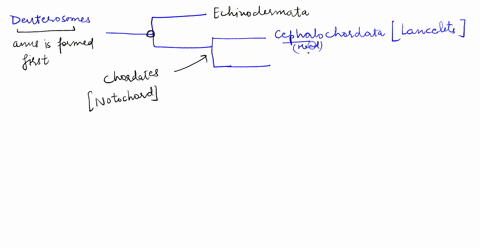 Deuterosomes
anus is formed
first
Echinodermata
Cephalochordata [Lancelets]
(head)
chordates
[Notochord]